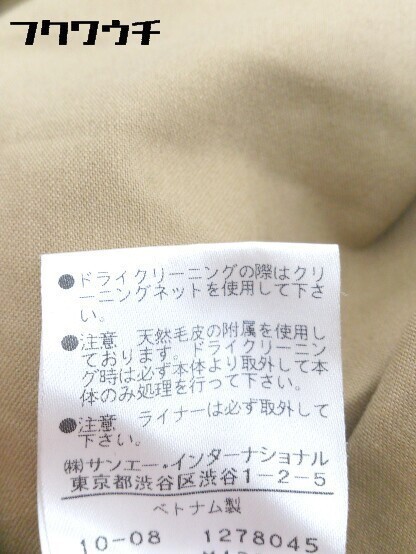 フクワウチ
●ドライクリーニングの際はクリ
ーニングネットを使用して下さ
い。
●注意 天然毛皮の附属を使用し
ております。ドライクリーニン
グ時は必ず本体より取外して本
体のみ処理を行って下さい。
●注意 ライナーは必ず取外して
下さい。
㈱サンエー・インターナショナル
東京都渋谷区渋谷1-2-5
ベトナム製
10-08 1278045